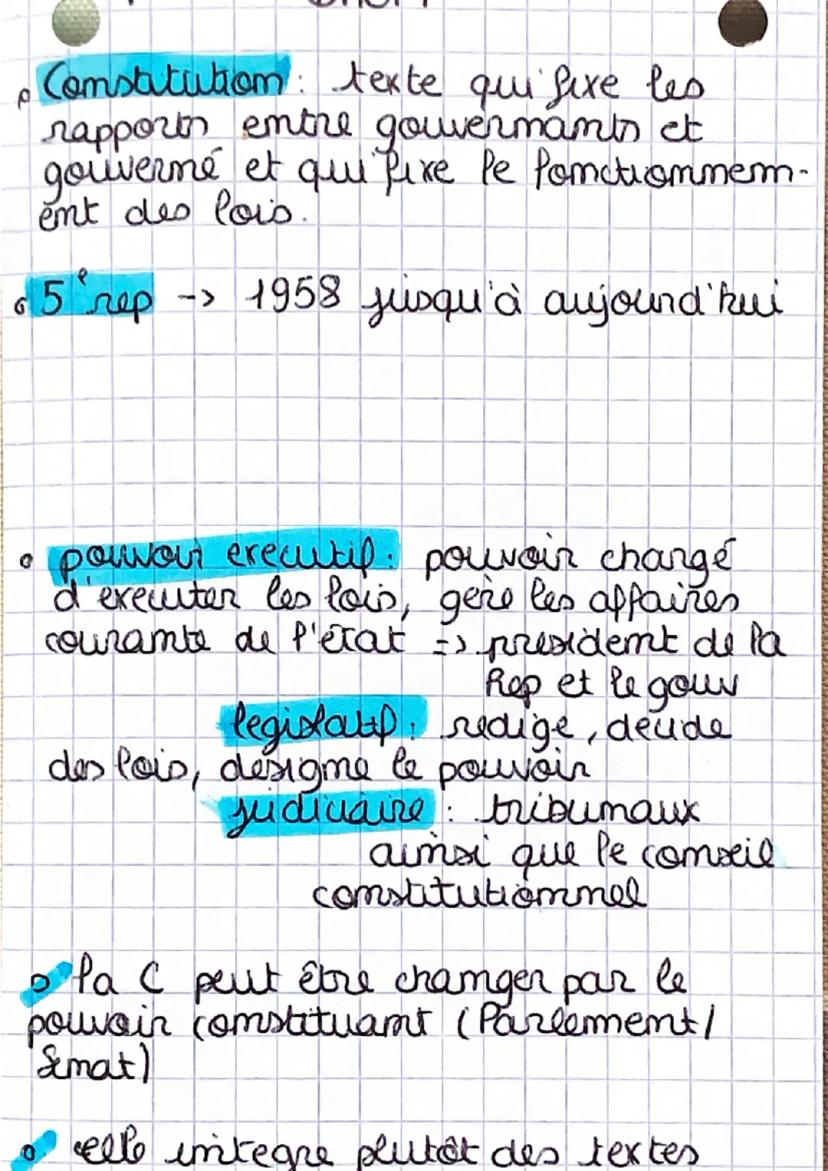 Constitution : texte qui fixe les
rapports entre gouvernants et
gouverné et qui fixe le fonctionnem-
ent des lois.
5e rep -> 1958 jusqu'à aujourd'hui
pouvoir executif : pouvoir chargé
d'executer les lois, gère les affaires
courante de l'état => président de la
Rep et le gouv
legislatif : redige, decide
des lois, désigne le pouvoir
judiciaire : tribunaux
ainsi que le conseil
constitutionnel
la C peut être changer par le
pouvoir constituant (Parlement/
Senat)
elle integre plutôt des textes